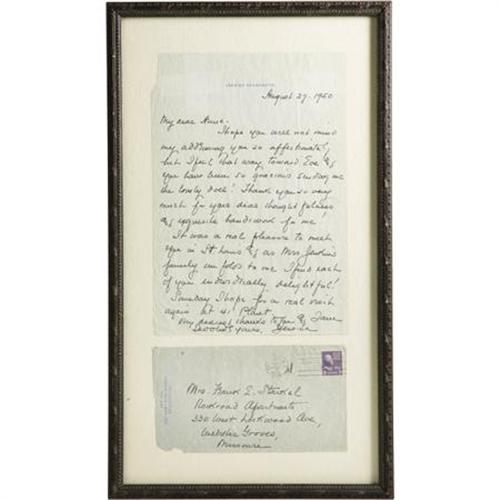 August 27, 1950
My dear Anne -
I hope you will not mind
my addressing you so affectionately,
but I feel that way toward
you have been so gracious sending me
the lovely doll! Thank you so very
much for your dear thoughtfulness
exquisite handiwork for me!
It was a real pleasure to meet
you in St. Louis as Mrs.
family unfolds to me I find each
of you individually delightful!
Someday I hope for a real visit
again at
My dearest thanks to you
yours,
Mrs. Frank E.
Rockroad Apartments
330 West Lockwood Ave,
Webster Groves,
Missouri